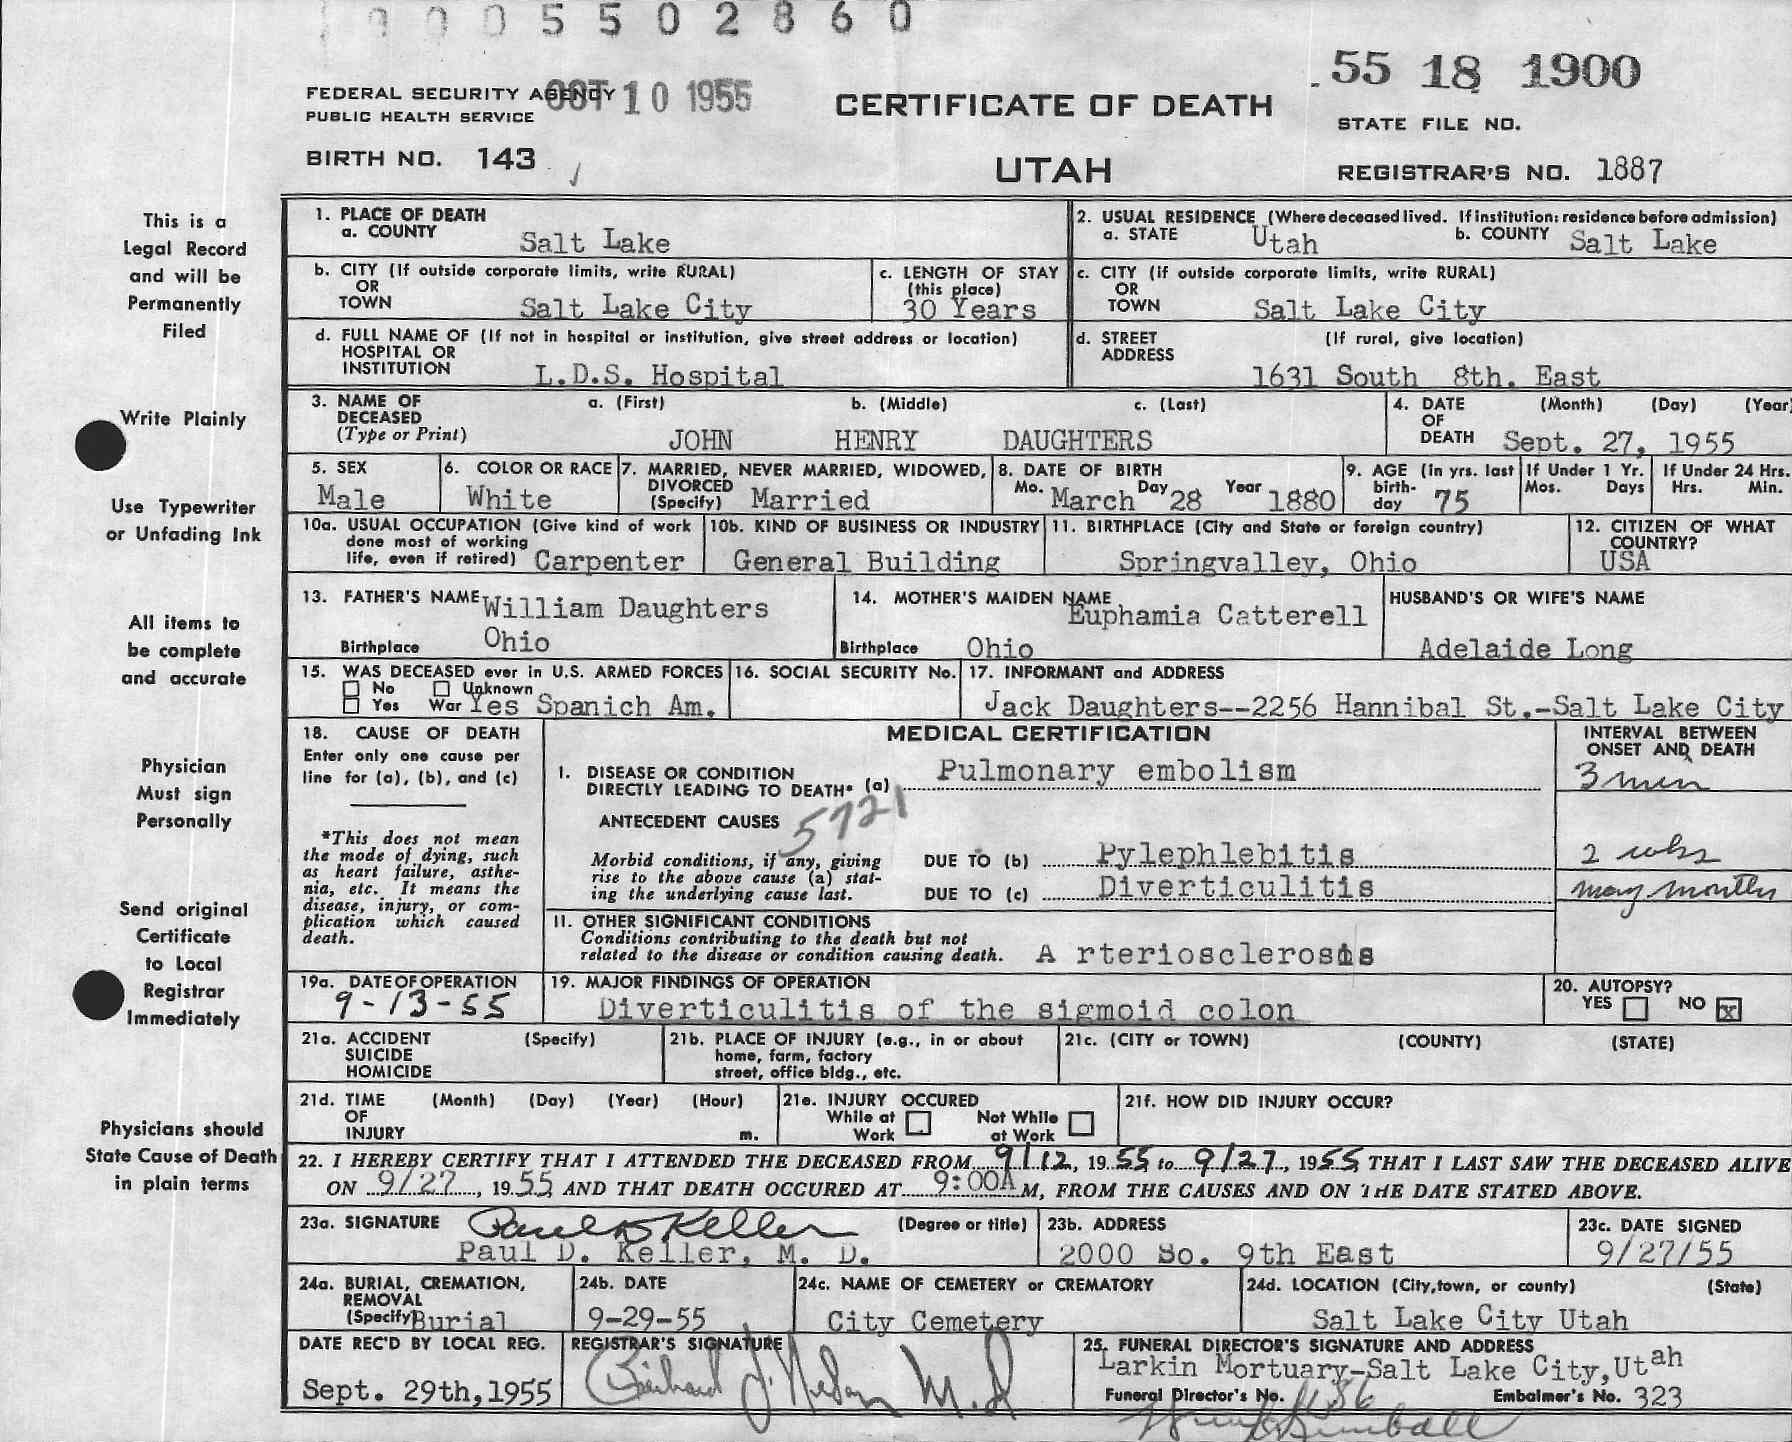 1900 5 5 0 2 8 6 0
.55 18 1900
FEDERAL SECURITY AGENCY OCT 10 1955
PUBLIC HEALTH SERVICE
CERTIFICATE OF DEATH
STATE FILE NO.
BIRTH NO. 143
UTAH
REGISTRAR'S NO. 1887
This is a
Legal Record
and will be
Permanently
Filed
Write Plainly
Use Typewriter
or Unfading Ink
All items to
be complete
and accurate
Physician
Must sign
Personally
Send original
Certificate
to Local
Registrar
Immediately
Physicians should
State Cause of Death
in plain terms
1. PLACE OF DEATH
a. COUNTY Salt Lake
2. USUAL RESIDENCE (Where deceased lived. If institution: residence before admission)
a. STATE Utah b. COUNTY Salt Lake
b. CITY (If outside corporate limits, write RURAL)
OR
TOWN Salt Lake City
c. LENGTH OF STAY
(this place)
30 Years
c. CITY (if outside corporate limits, write RURAL)
OR
TOWN Salt Lake City
d. FULL NAME OF (If not in hospital or institution, give street address or location)
HOSPITAL OR
INSTITUTION L.D.S. Hospital
d. STREET (If rural, give location)
ADDRESS
1631 South 8th. East
3. NAME OF a. (First) b. (Middle) c. (Last)
DECEASED
(Type or Print) JOHN HENRY DAUGHTERS
4. DATE (Month) (Day) (Year)
OF
DEATH Sept. 27, 1955
5. SEX
Male
6. COLOR OR RACE
White
7. MARRIED, NEVER MARRIED, WIDOWED,
DIVORCED
(Specify) Married
8. DATE OF BIRTH
Mo. March Day 28 Year 1880
9. AGE (In yrs. last
birth-
day 75
If Under 1 Yr.
Mos. Days
If Under 24 Hrs.
Hrs. Min.
10a. USUAL OCCUPATION (Give kind of work
done most of working
life, even if retired) Carpenter
10b. KIND OF BUSINESS OR INDUSTRY
General Building
11. BIRTHPLACE (City and State or foreign country)
Springvalley, Ohio
12. CITIZEN OF WHAT
COUNTRY?
USA
13. FATHER'S NAME William Daughters
Birthplace Ohio
14. MOTHER'S MAIDEN NAME
Euphamia Catterell
Birthplace Ohio
HUSBAND'S OR WIFE'S NAME
Adelaide Long
15. WAS DECEASED ever in U.S. ARMED FORCES
No Unknown
Yes War Yes Spanich Am.
16. SOCIAL SECURITY No.
17. INFORMANT and ADDRESS
Jack Daughters--2256 Hannibal St.-Salt Lake City
18. CAUSE OF DEATH
Enter only one cause per
line for (a), (b), and (c)
*This does not mean
the mode of dying, such
as heart failure, asthe-
nia, etc. It means the
disease, injury, or com-
plication which caused
death.
MEDICAL CERTIFICATION
INTERVAL BETWEEN
ONSET AND DEATH
I. DISEASE OR CONDITION
DIRECTLY LEADING TO DEATH* (a) Pulmonary embolism
3 min
ANTECEDENT CAUSES 5721
Morbid conditions, if any, giving
rise to the above cause (a) stat-
ing the underlying cause last.
DUE TO (b) Pylephlebitis
2 wks
DUE TO (c) Diverticulitis
many months
II. OTHER SIGNIFICANT CONDITIONS
Conditions contributing to the death but not
related to the disease or condition causing death. A rteriosclerosis
19a. DATE OF OPERATION
9-13-55
19. MAJOR FINDINGS OF OPERATION
Diverticulitis of the sigmoid colon
20. AUTOPSY?
YES NO X
21a. ACCIDENT (Specify)
SUICIDE
HOMICIDE
21b. PLACE OF INJURY (e.g., in or about
home, farm, factory
street, office bldg., etc.
21c. (CITY or TOWN) (COUNTY) (STATE)
21d. TIME (Month) (Day) (Year) (Hour)
OF
INJURY m.
21e. INJURY OCCURED
While at Not While
Work at Work
21f. HOW DID INJURY OCCUR?
22. I HEREBY CERTIFY THAT I ATTENDED THE DECEASED FROM 9/12, 1955 to 9/27, 1955 THAT I LAST SAW THE DECEASED ALIVE
ON 9/27, 1955 AND THAT DEATH OCCURED AT 9:00A M, FROM THE CAUSES AND ON THE DATE STATED ABOVE.
23a. SIGNATURE Paul D Keller (Degree or title)
Paul D. Keller, M. D.
23b. ADDRESS
2000 So. 9th East
23c. DATE SIGNED
9/27/55
24a. BURIAL, CREMATION,
REMOVAL
(Specify Burial
24b. DATE
9-29-55
24c. NAME OF CEMETERY or CREMATORY
City Cemetery
24d. LOCATION (City, town, or county) (State)
Salt Lake City Utah
DATE REC'D BY LOCAL REG.
Sept. 29th, 1955
REGISTRAR'S SIGNATURE
M.D
25. FUNERAL DIRECTOR'S SIGNATURE AND ADDRESS
Larkin Mortuary-Salt Lake City, Utah
Funeral Director's No. Embalmer's No. 323